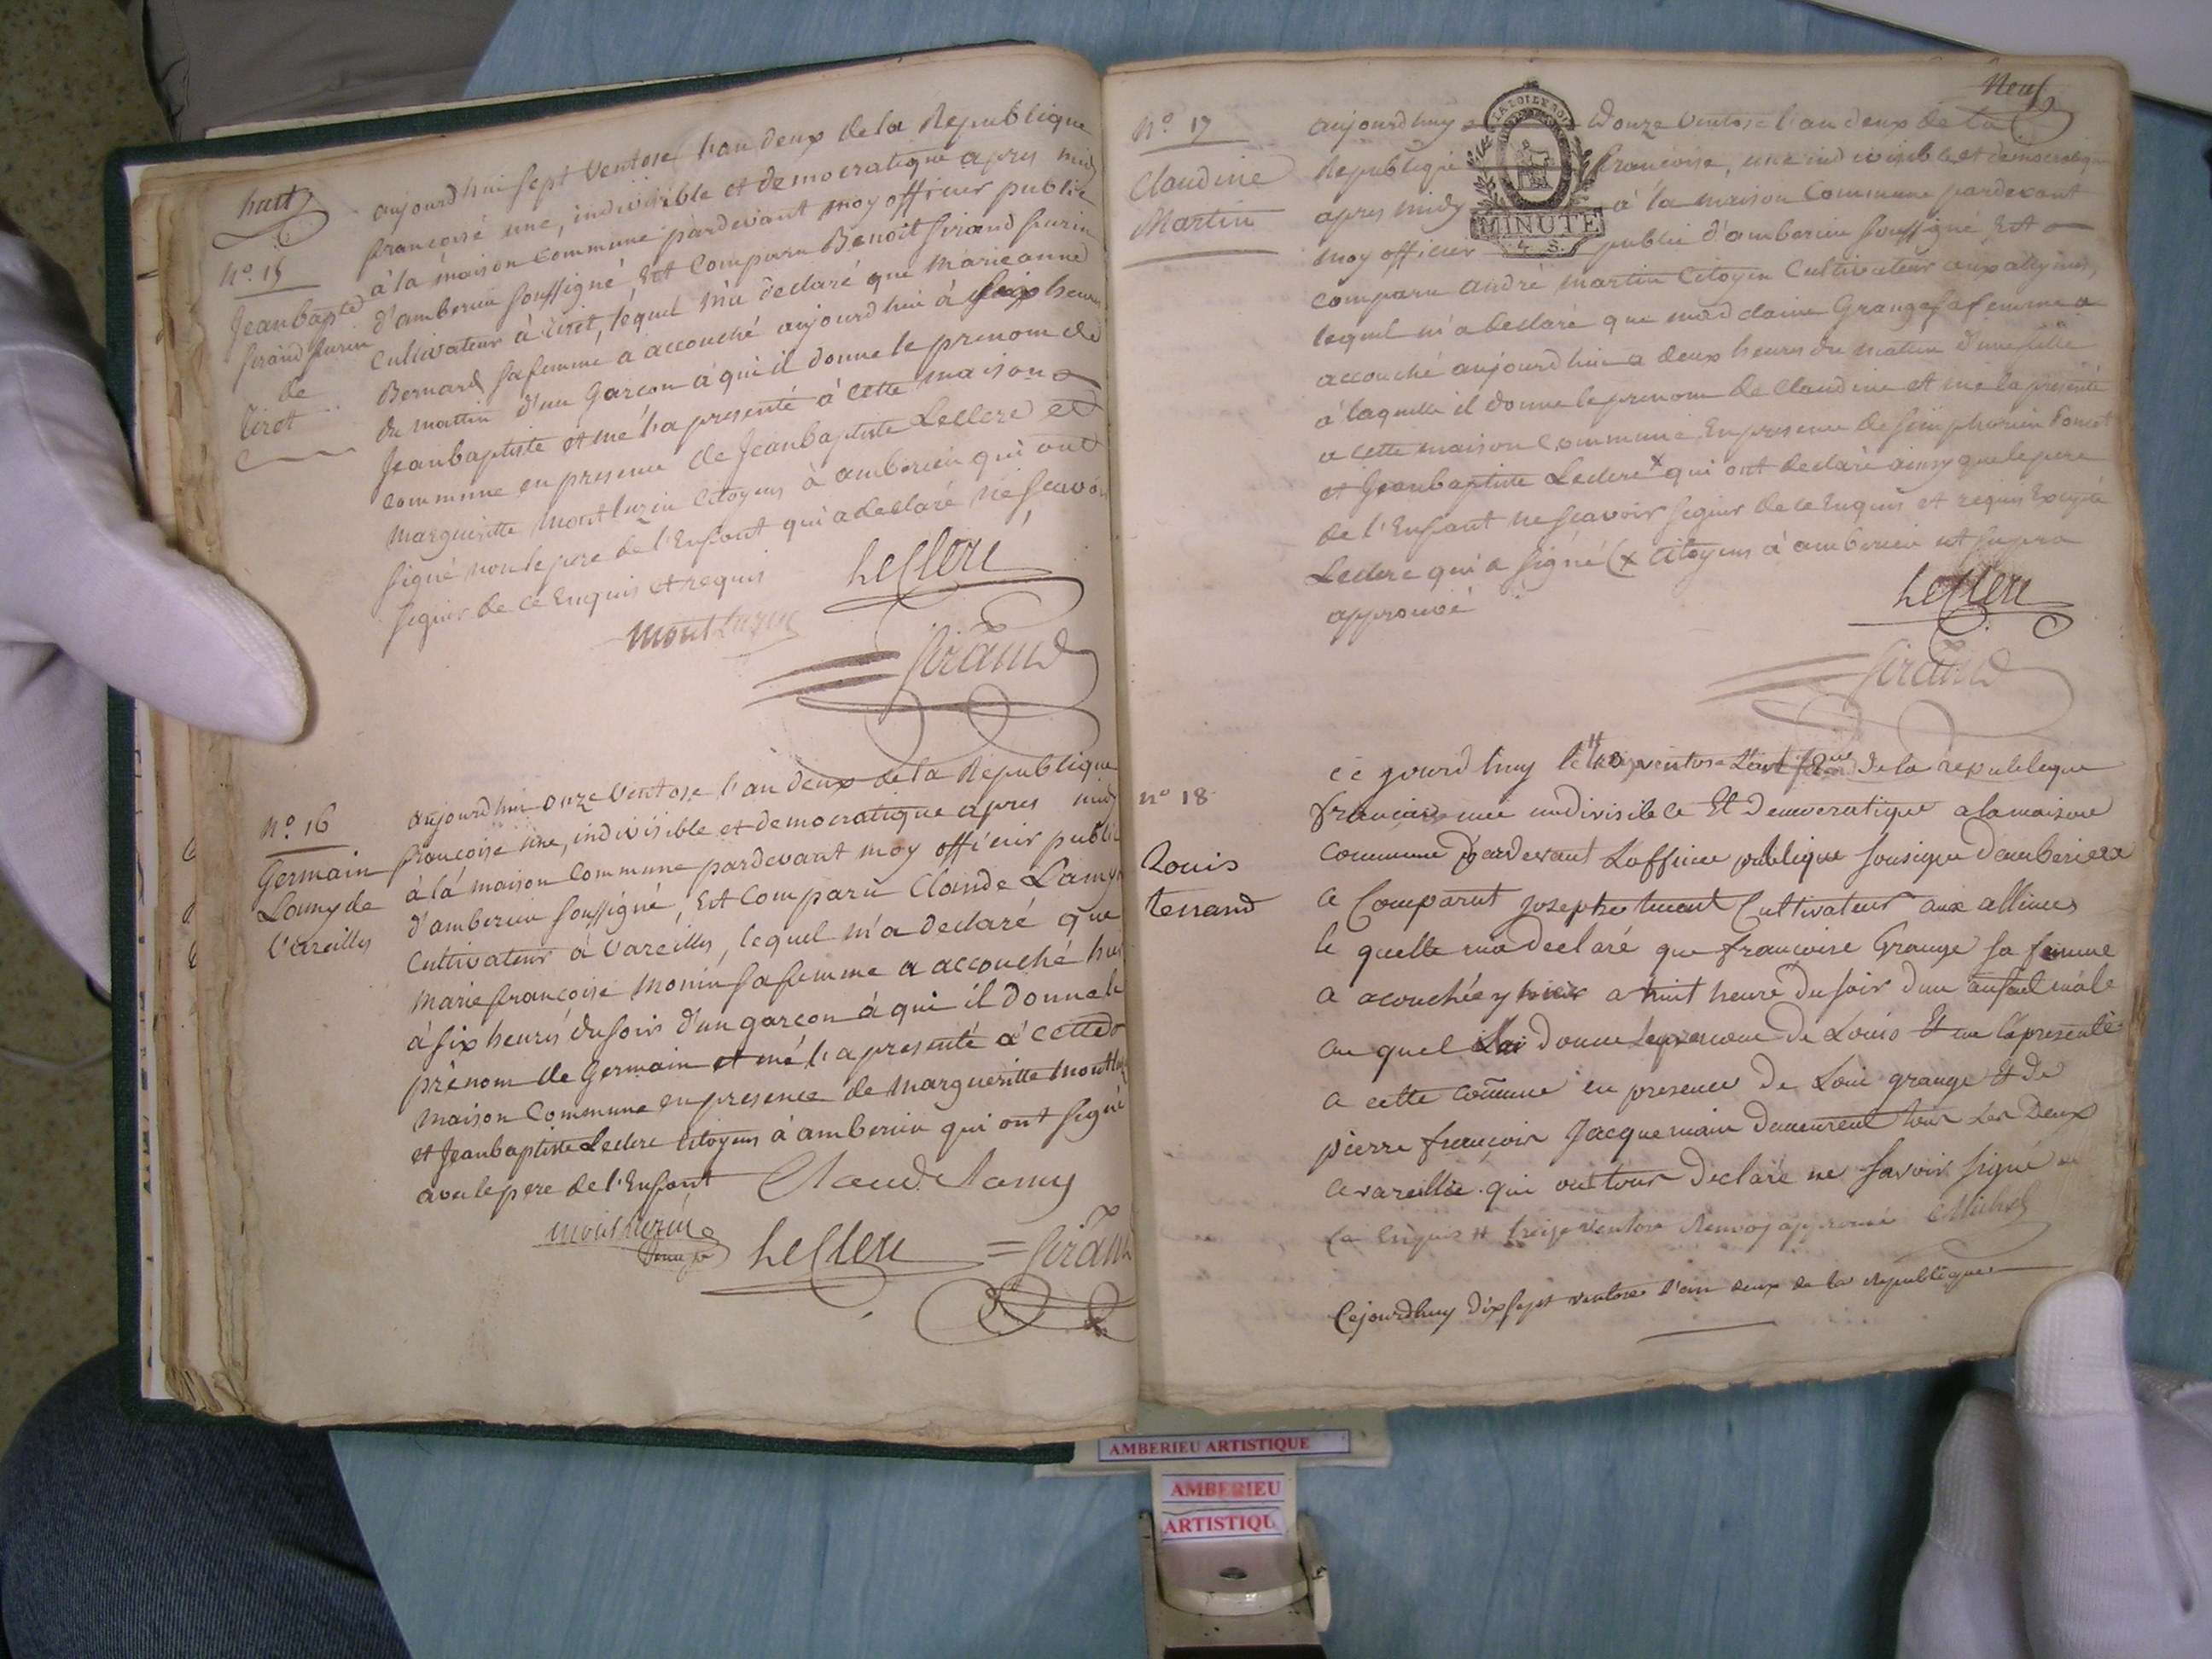 huit
N.º 15
Jeanbapte
Sirand furin
de
Tiret
aujourdhui sept Ventose l'an deux de la Republique
françoise une, indivisible et democratique apres midy
à la maison commune pardevant moy officier public
d'amberieu soussigné, Est Comparu Benoit Sirand furin
Cultivateur à tiret, lequel m'a declaré que Marieanne
Bernard sa femme a accouché aujourdhui à six heures
du mattin d'un Garcon à qui il donne le prenom de
Jeanbaptiste et me l'a presenté à cette maison
Commune en presence de Jeanbaptiste Leclerc et
Margueritte Montluzin Citoyens à amberieu qui ont
signé non le pere de l'Enfant qui a declaré ne scavoir
signer de ce Enquis et requis
LeClerc
Montluzin
Sirand
N.º 16
Germain
Lamy de
Vareilles
aujourdhui onze Ventose l'an deux de la Republique
françoise une, indivisible et democratique apres midy
à la maison Commune pardevant moy officier public
d'amberieu soussigné, Est Comparu Claude Lamy
Cultivateur à Vareilles, lequel m'a declaré que
Marie françoise Monin sa femme a accouché hier
à six heures du soir d'un garcon à qui il donne le
prénom de Germain et me l'a presenté à cette
maison Commune en presence de Margueritte Montluz
et Jeanbaptiste Leclerc Citoyens à amberieu qui ont signé
avec le pere de l'Enfant
Claude Lamy
Montluzin
LeClerc
Sirand
Neuf
N.º 17
Claudine
Martin
LA LOI LE ROI
MINUTE
4 S.
aujourdhuy Douze Ventose l'an deux de la
Republique francoise, une indivisible et democratique
apres midy à la maison Commune pardevant
moy officier public d'amberieu soussigné, Est
comparu andré Martin Citoyen Cultivateur aux allymes,
lequel m'a declaré que claire Grange sa femme a
accouché aujourdhui a deux heures du matin d'une fille
à laquelle il donne le prenom de Claudine et me la presenté
a cette maison Commune, En presence de simphorien Poncet
et Jeanbaptiste Leclerc x qui ont declaré ainsy que le pere
de l'Enfant ne scavoir signer de ce Enquis et requis Excepté
Leclerc qui a signé (x Citoyens à amberieu ut supra
approuvé
LeClerc
Sirand
nº 18
Louis
terrand
ce jourd huy le # ventose Lant deux de la republique
francaise une indivisible Et Democratique a la maison
commune pardevant Lofficier publique sousigne damberieux
a Comparut joseph terrant Cultivateur aux allimes
le quelle ma declaré que francoise Grange sa femme
a acouchée hier a huit heure du soir dun anfant male
au quel Lui donne Le prenom de Louis Et me la presenté
a cette comune en presence de Loui grange Et de
pierre françois Jacquemain demeurent tous Les Deux
a vareille qui ont tous declaré ne savoir signé
ce Enquis # treize ventose Renvoy approuvé Michel
Cejourdhuy dix sept ventose l'an deux de la republique
AMBERIEU ARTISTIQUE
AMBERIEU
ARTISTIQU